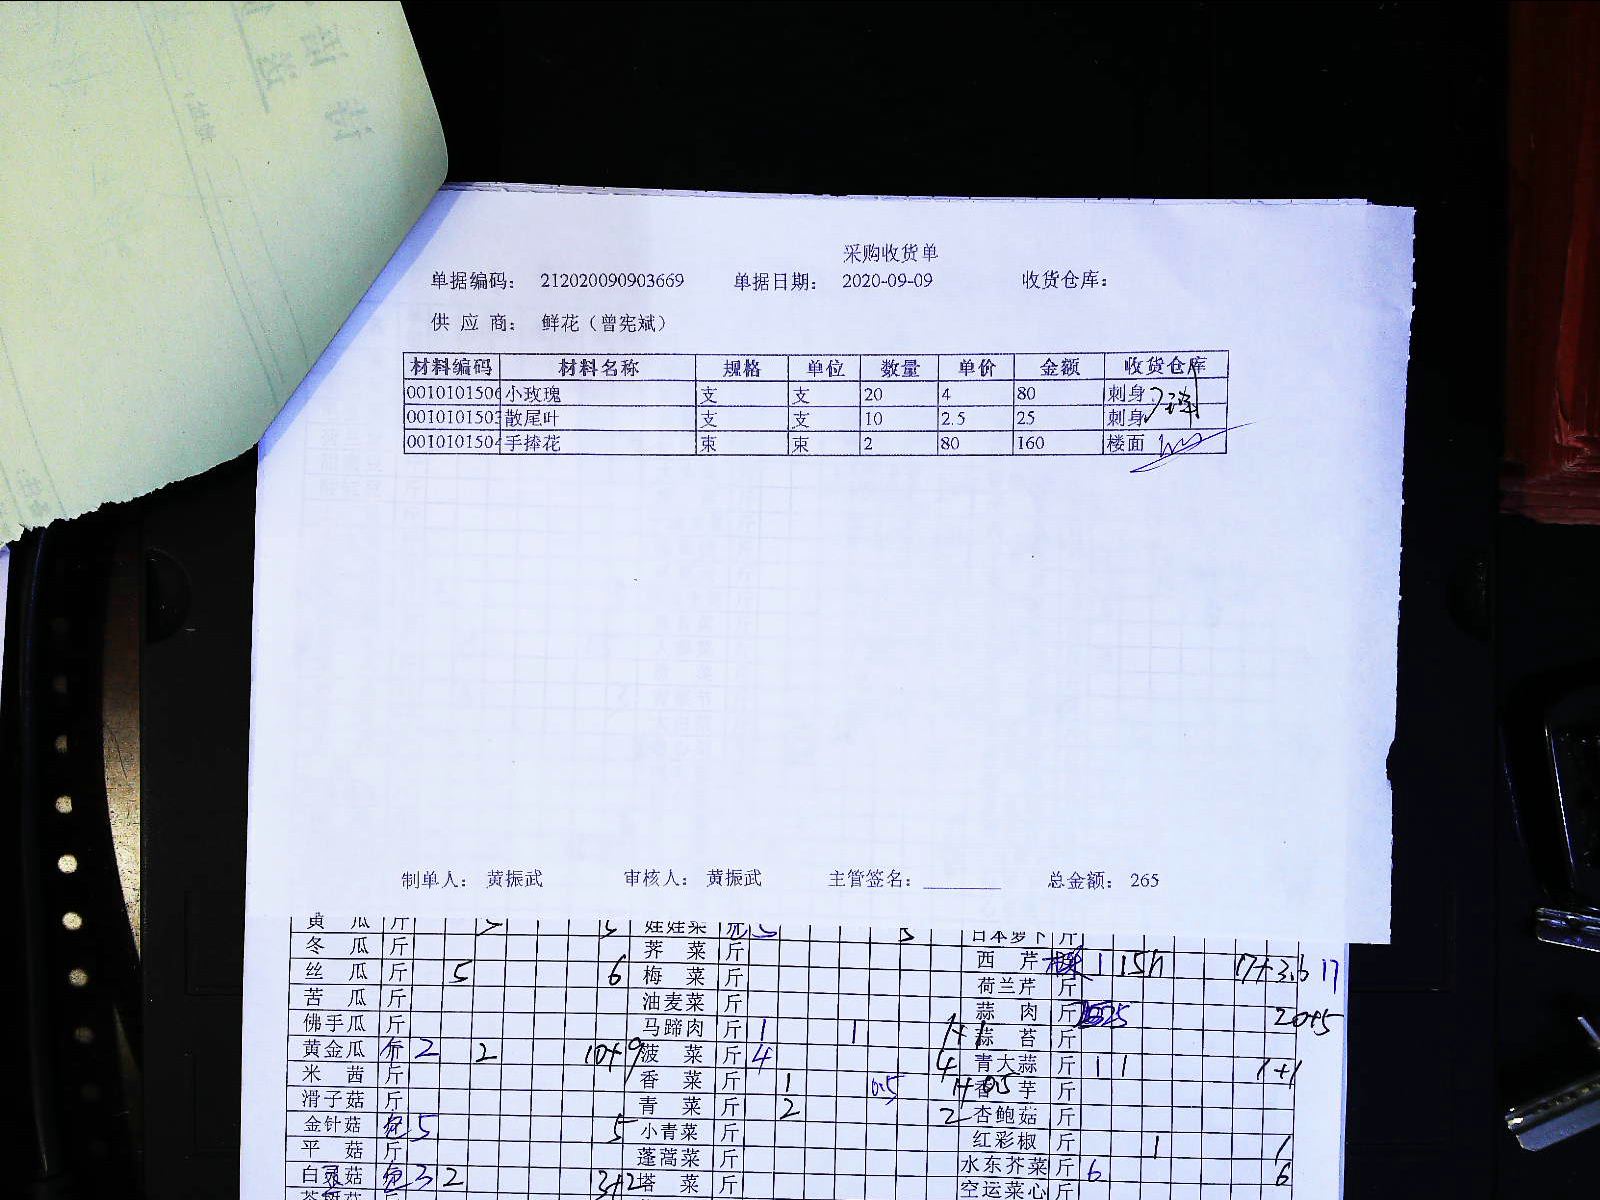 采购收货单
单据编码: 212020090903669 单据日期: 2020-09-09 收货仓库:
供 应 商: 鲜花（曾宪斌）
材料编码 材料名称 规格 单位 数量 单价 金额 收货仓库
0010101506 小玫瑰 支 支 20 4 80 刺身
001010150 散尾叶 支 支 10 2.5 25 刺身
001010150 手捧花 束 束 2 80 160 楼面
制单人: 黄振武 审核人: 黄振武 主管签名: 总金额: 265
黄 瓜 斤 娃娃菜 日本萝卜 斤
冬 瓜 斤 荠 菜 斤 西 芹 1 17+3.6 17
丝 瓜 斤 5 6 梅 菜 斤 荷兰芹 斤
苦 瓜 斤 油麦菜 斤 蒜 肉 斤 20+5
佛手瓜 斤 马蹄肉 斤 1 1 1+1 蒜 苔 斤
黄金瓜 斤 2 2 10+9 菠 菜 斤 4 4 青大蒜 斤 1 1 1+1
米 茜 斤 香 菜 斤 1 0.5 1+0.5 香 芋 斤
滑子菇 斤 青 菜 斤 2 2 杏鲍菇 斤
金针菇 包 5 5 小青菜 斤 红彩椒 斤 1 1
平 菇 斤 蓬蒿菜 斤 水东芥菜 斤 6 6
白灵菇 包 3 2 3+2 塔 菜 斤 空运菜心 斤